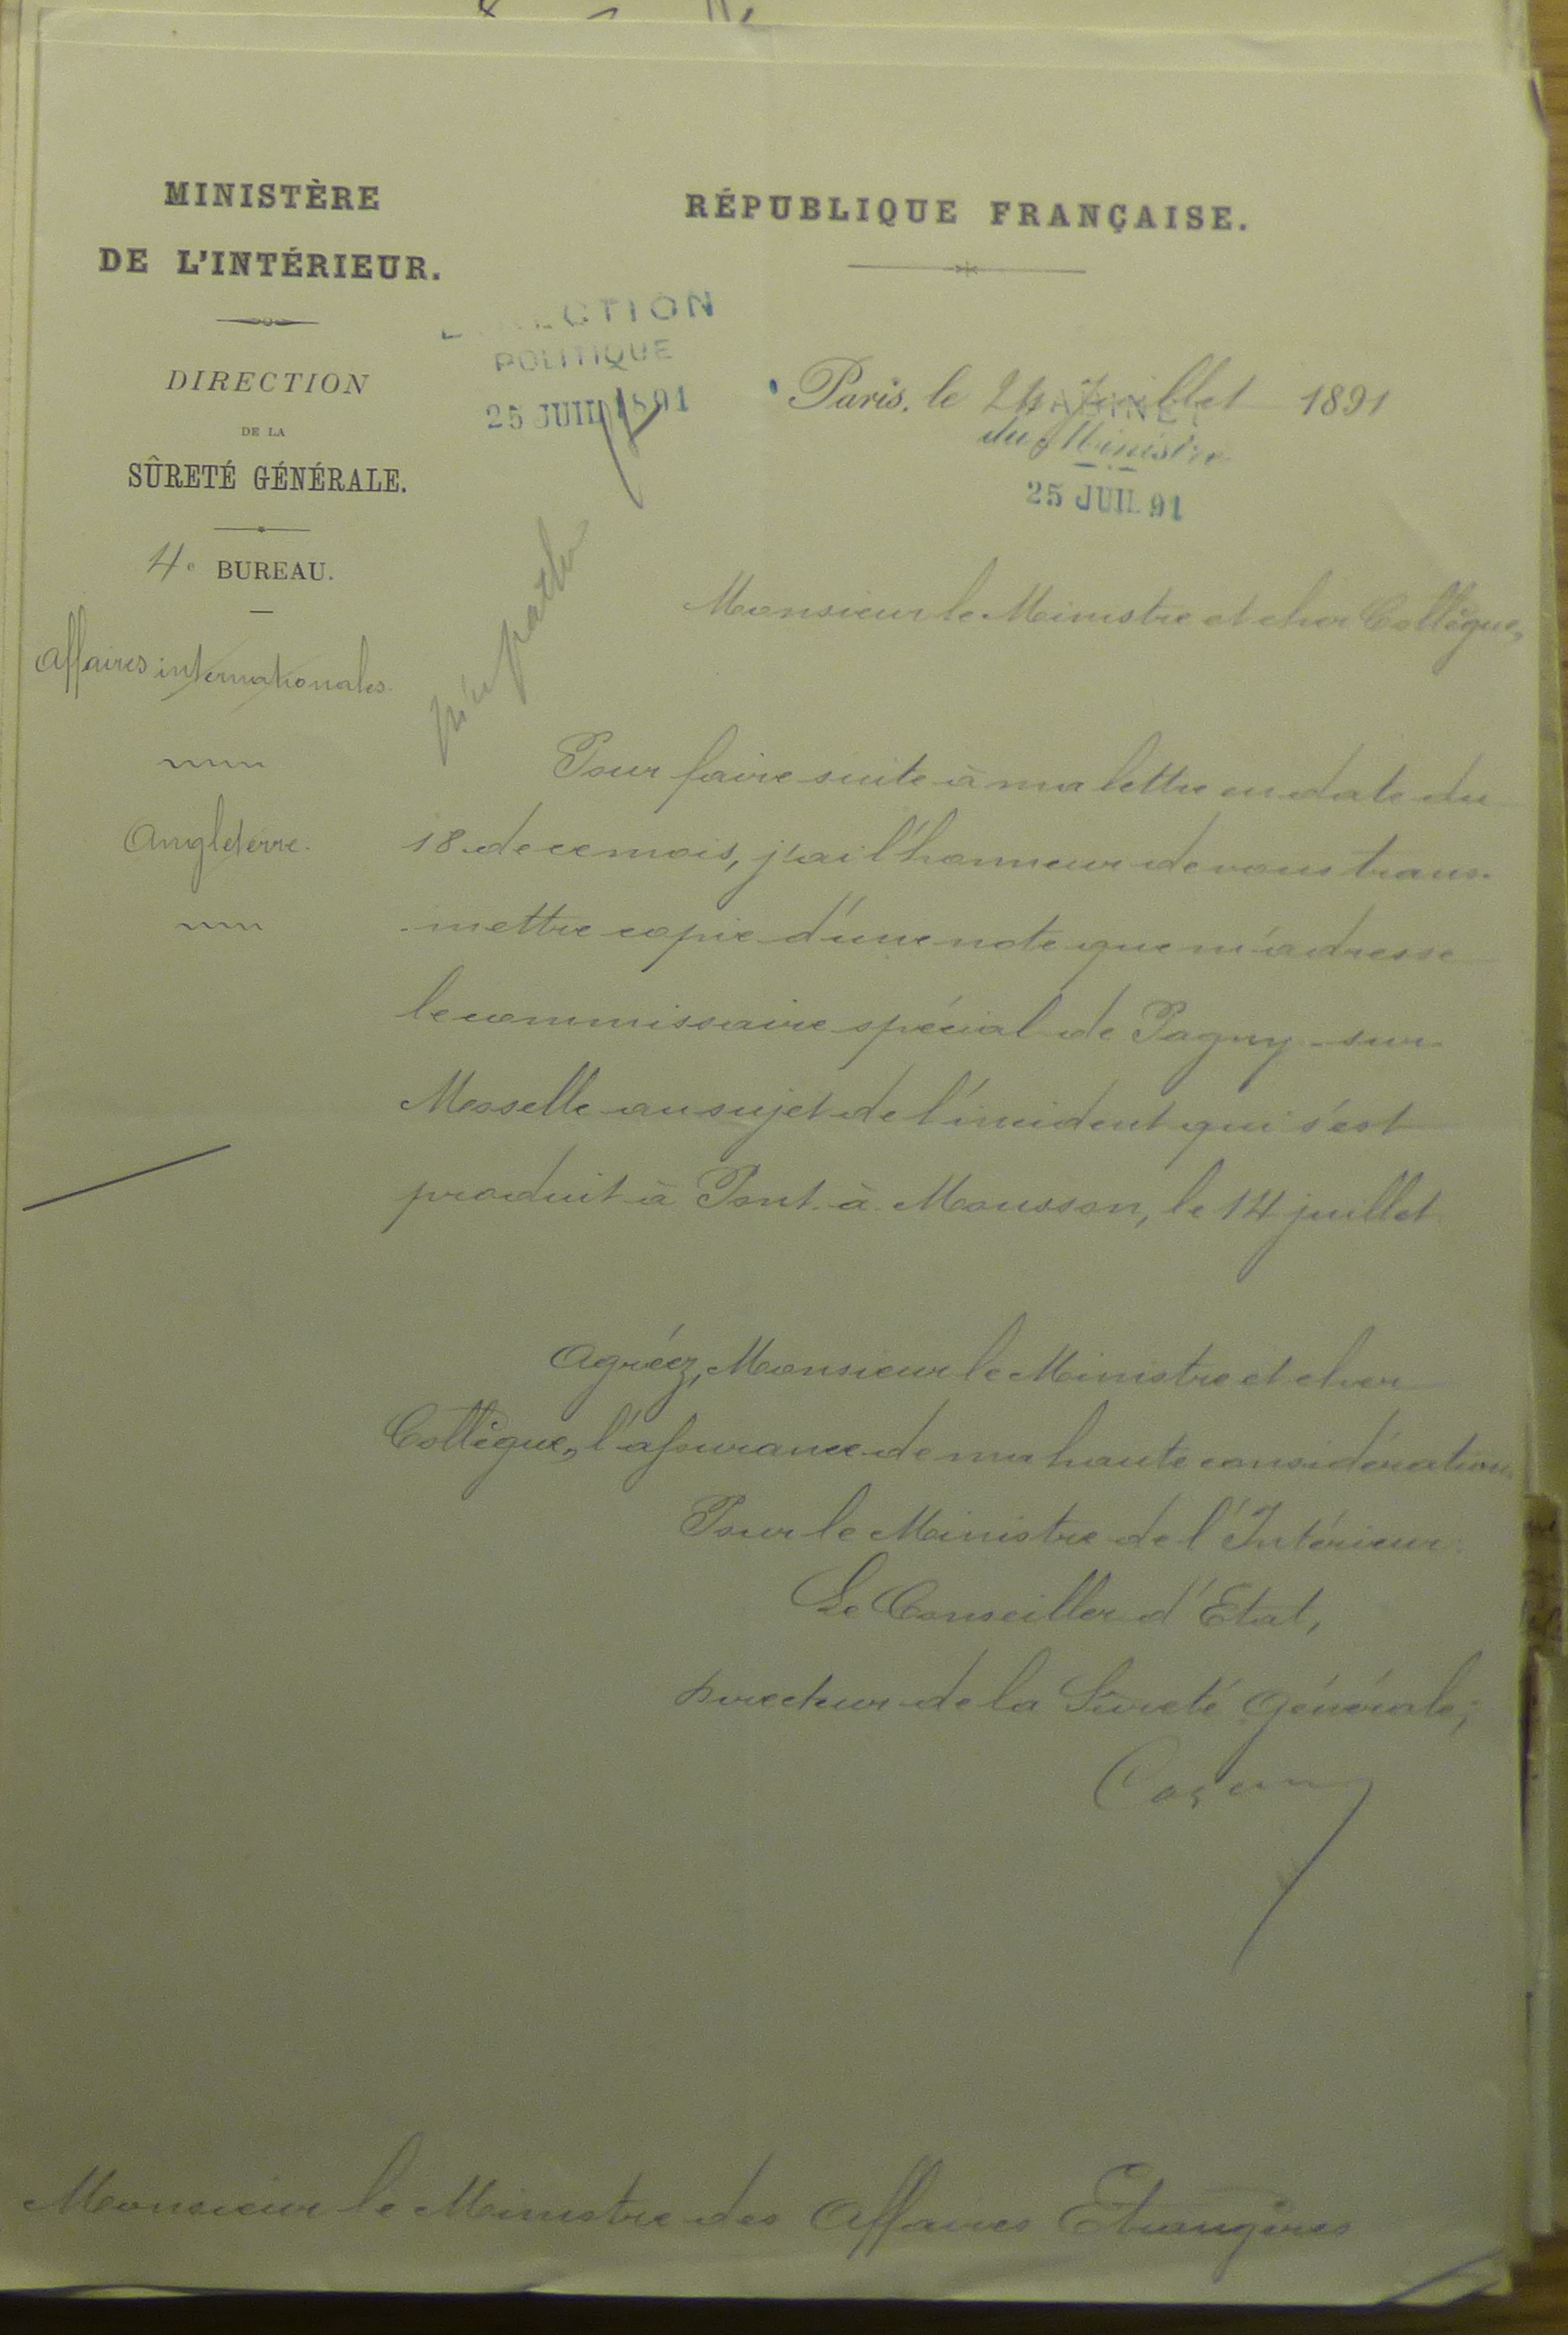 MINISTÈRE
DE L'INTÉRIEUR.
DIRECTION
DE LA
SÛRETÉ GÉNÉRALE.
4e BUREAU.
Affaires internationales.
Angleterre.
RÉPUBLIQUE FRANÇAISE.
DIRECTION
POLITIQUE
25 JUIL 1891
Paris, le 24 Juillet 1891
CABINET
du Ministre
25 JUIL 91
Monsieur le Ministre et cher Collègue,
Pour faire suite à ma lettre en date du
18 de ce mois, j'ai l'honneur de vous trans-
-mettre copie d'une note que m'adresse
le commissaire spécial de Pagny-sur-
Moselle au sujet de l'incident qui s'est
produit à Pont-à-Mousson, le 14 juillet
Agréez, Monsieur le Ministre et cher
Collègue, l'assurance de ma haute considération.
Pour le Ministre de l'Intérieur.
Le Conseiller d'Etat,
Directeur de la Sûreté Générale;
Monsieur le Ministre des Affaires Etrangères